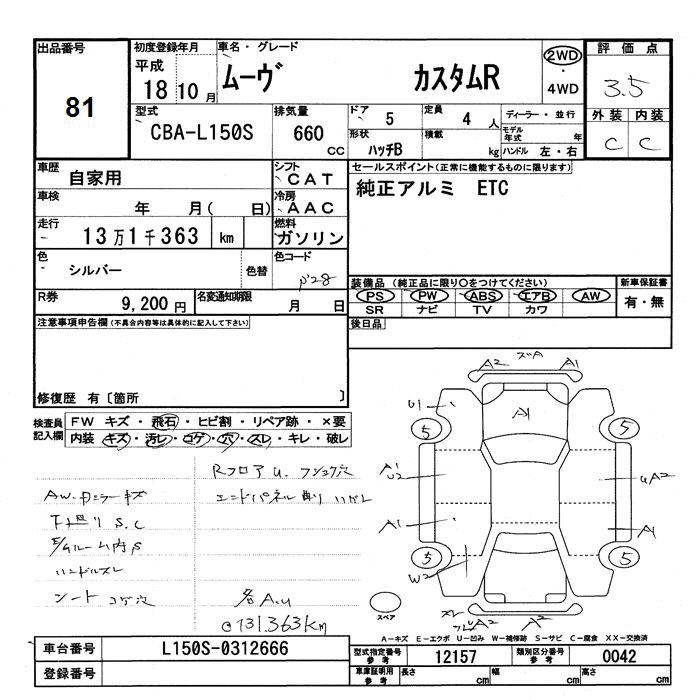 出品番号
81
初度登録年月
平成
18 10 月
車名・グレード
ムーヴ カスタムR
2WD
・
4WD
評価点
3.5
外装 内装
C C
型式
CBA-L150S
排気量
660
CC
ドア 5
定員 4 人
ディーラー・並行
形状 ハッチB
積載 kg
モデル年式 年
ハンドル 左・右
車歴
自家用
シフト
CAT
車検
年 月( 日)
冷房
AAC
走行
13万1千363 km
燃料
ガソリン
色
シルバー
色替
色コード
R券
9,200 円
名変通知期限
月 日
セールスポイント(正常に機能するものに限ります)
純正アルミ ETC
装備品 (純正品に限り〇をつけてください)
PS PW ABS エアB AW
SR ナビ TV カワ
新車保証書
有・無
後日品
注意事項申告欄(不具合内容等は具体的に記入して下さい)
修復歴 有〔箇所 〕
検査員記入欄
FW キズ・飛石・ヒビ割・リペア跡・×要
内装 キズ・汚レ・コゲ・穴・スレ・キレ・破レ
A2 A1
U1
A1
5 5
A1
U2
UA2
A1 A1
5 5
W2
UA2 A2
スペア
Rフロア U.
エンドパネル
S.C
ハンドルスレ
シート コゲ穴
各A.U
131.363km
A-キズ E-エクボ U-凹み W-補修跡 S-サビ C-腐食 XX-交換済
車台番号 L150S-0312666
登録番号
型式指定番号 参考 12157
類別区分番号 参考 0042
車庫証明用 参考
長さ cm
幅 cm
高さ cm